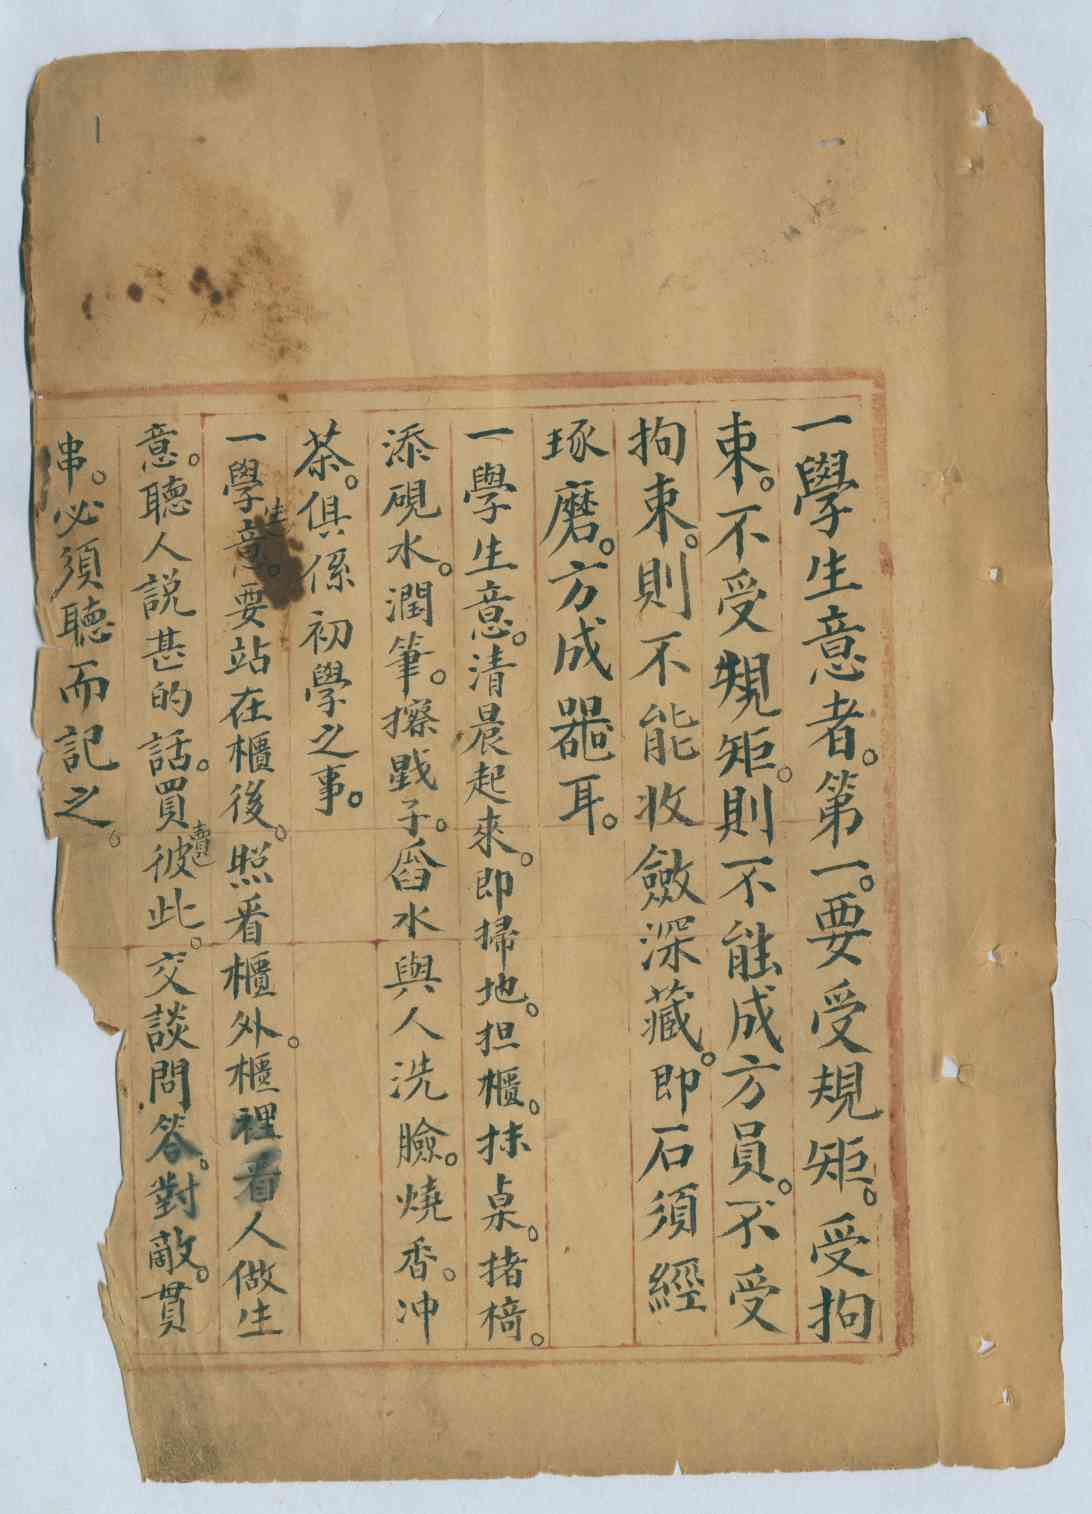 一學生意者。第一。要受規矩。受拘
束。不受規矩。則不能成方員。不受
拘束。則不能收斂深藏。即石須經
琢磨。方成器耳。
一學生意。清晨起來。即掃地。担櫃。抹桌。揩椅。
添硯水。潤筆。擦戥子。舀水與人洗臉。燒香。冲
茶。俱係初學之事。
一學生意。要站在櫃後。照看櫃外。櫃裡看人做生
意。聽人説甚的話。買賣彼此。交談問答。對敵。貫
串。必須聽而記之。